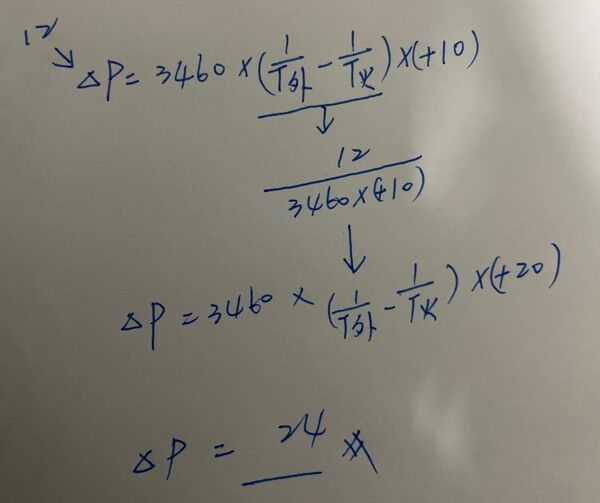 12
△P = 3460 × (1/T外 - 1/T火) × (+10)
12
3460 × (+10)
△P = 3460 × (1/T外 - 1/T火) × (+20)
△P = 24